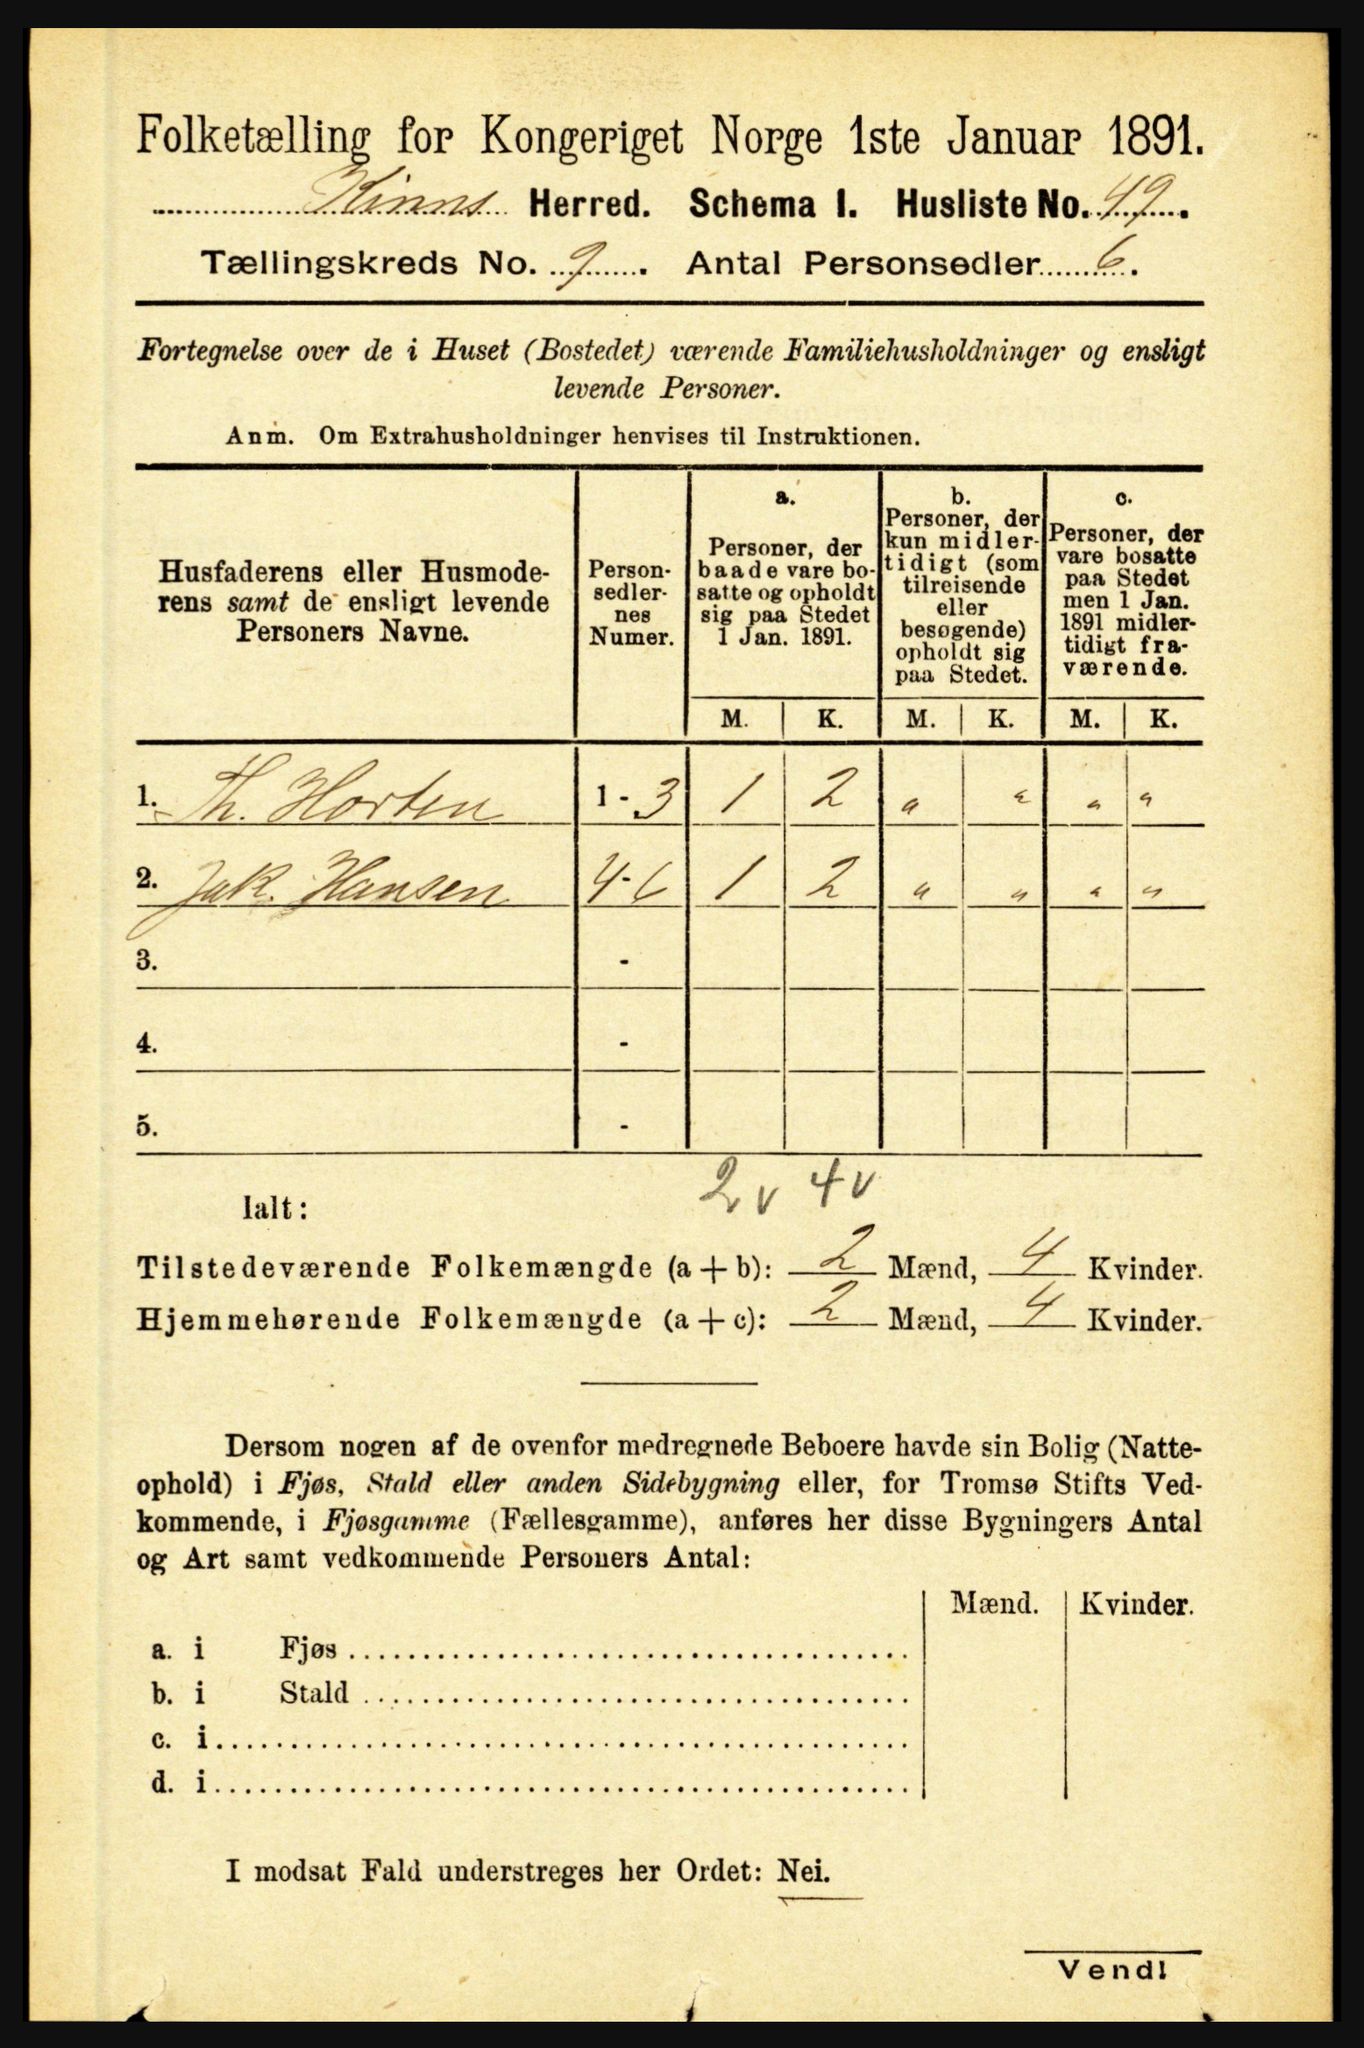 Folketælling for Kongeriget Norge 1ste Januar 1891.
Kinns Herred. Schema I. Husliste No. 49.
Tællingskreds No. 9. Antal Personsedler 6.
Fortegnelse over de i Huset (Bostedet) værende Familiehusholdninger og ensligt
levende Personer.
Anm. Om Extrahusholdninger henvises til Instruktionen.
Husfaderens eller Husmode-
rens samt de ensligt levende
Personers Navne.
Person-
sedler-
nes
Numer.
a.
Personer, der
baade vare bo-
satte og opholdt
sig paa Stedet
1 Jan. 1891.
b.
Personer, der
kun midler-
tidigt (som
tilreisende
eller
besøgende)
opholdt sig
paa Stedet.
c.
Personer, der
vare bosatte
paa Stedet
men 1 Jan.
1891 midler-
tidigt fra-
værende.
M. K. M. K. M. K.
1. Th. Horten 1-3 1 2 " " " "
2. Jak. Hansen 4-6 1 2 " " " "
3. -
4. -
5. -
2 v 4 v
Ialt:
Tilstedeværende Folkemængde (a + b): 2 Mænd, 4 Kvinder.
Hjemmehørende Folkemængde (a + c): 2 Mænd, 4 Kvinder.
Dersom nogen af de ovenfor medregnede Beboere havde sin Bolig (Natte-
ophold) i Fjøs, Stald eller anden Sidebygning eller, for Tromsø Stifts Ved-
kommende, i Fjøsgamme (Fællesgamme), anføres her disse Bygningers Antal
og Art samt vedkommende Personers Antal:
Mænd. Kvinder.
a. i Fjøs
b. i Stald
c. i
d. i
I modsat Fald understreges her Ordet: Nei.
Vend!